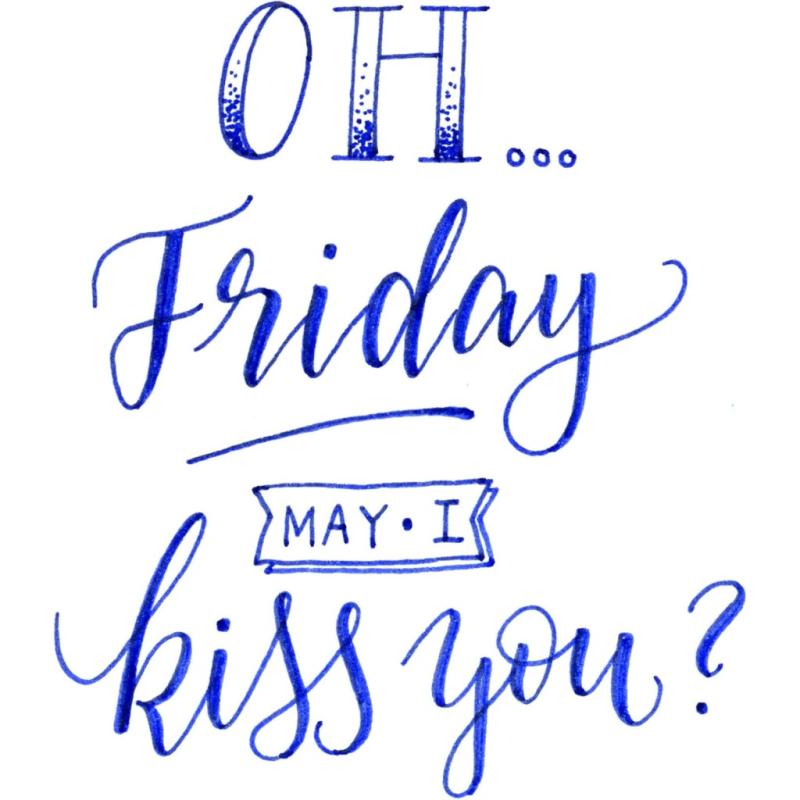 OH...
Friday
MAY • I
kiss you?